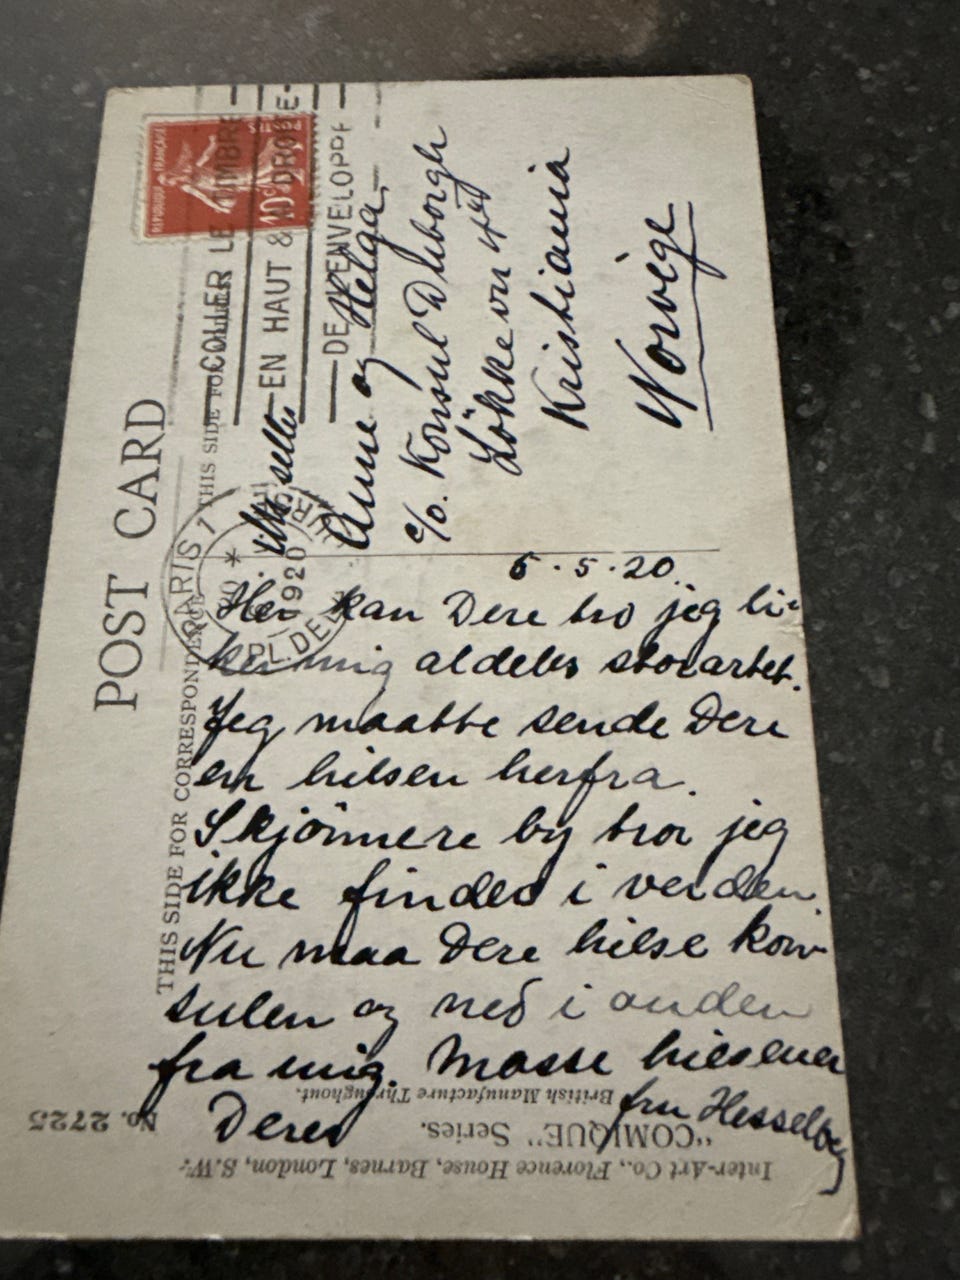 POST CARD
THIS SIDE FOR CORRESPONDENCE
THIS SIDE FOR
REPUBLIQUE FRANÇAISE
10c
COLLER LE TIMBRE
EN HAUT & A DROITE
DE L'ENVELOPPE
PARIS
1920
Anne og Helga,
c/o. Konsul Duborgh
Lökkevn
Kristiania
Norvège
5.5.20.
Her kan Dere tro jeg li-
ker mig aldeles storartet.
Jeg maatte sende Dere
en hilsen herfra.
Skjönnere by tror jeg
ikke findes i verden.
Nu maa Dere hilse kon-
sulen og ned i anden
fra mig. Masse hilsener
Deres fru Hesselberg
No. 2725
British Manufacture Throughout.
"COMIQUE" Series.
Inter-Art Co., Florence House, Barnes, London, S.W.